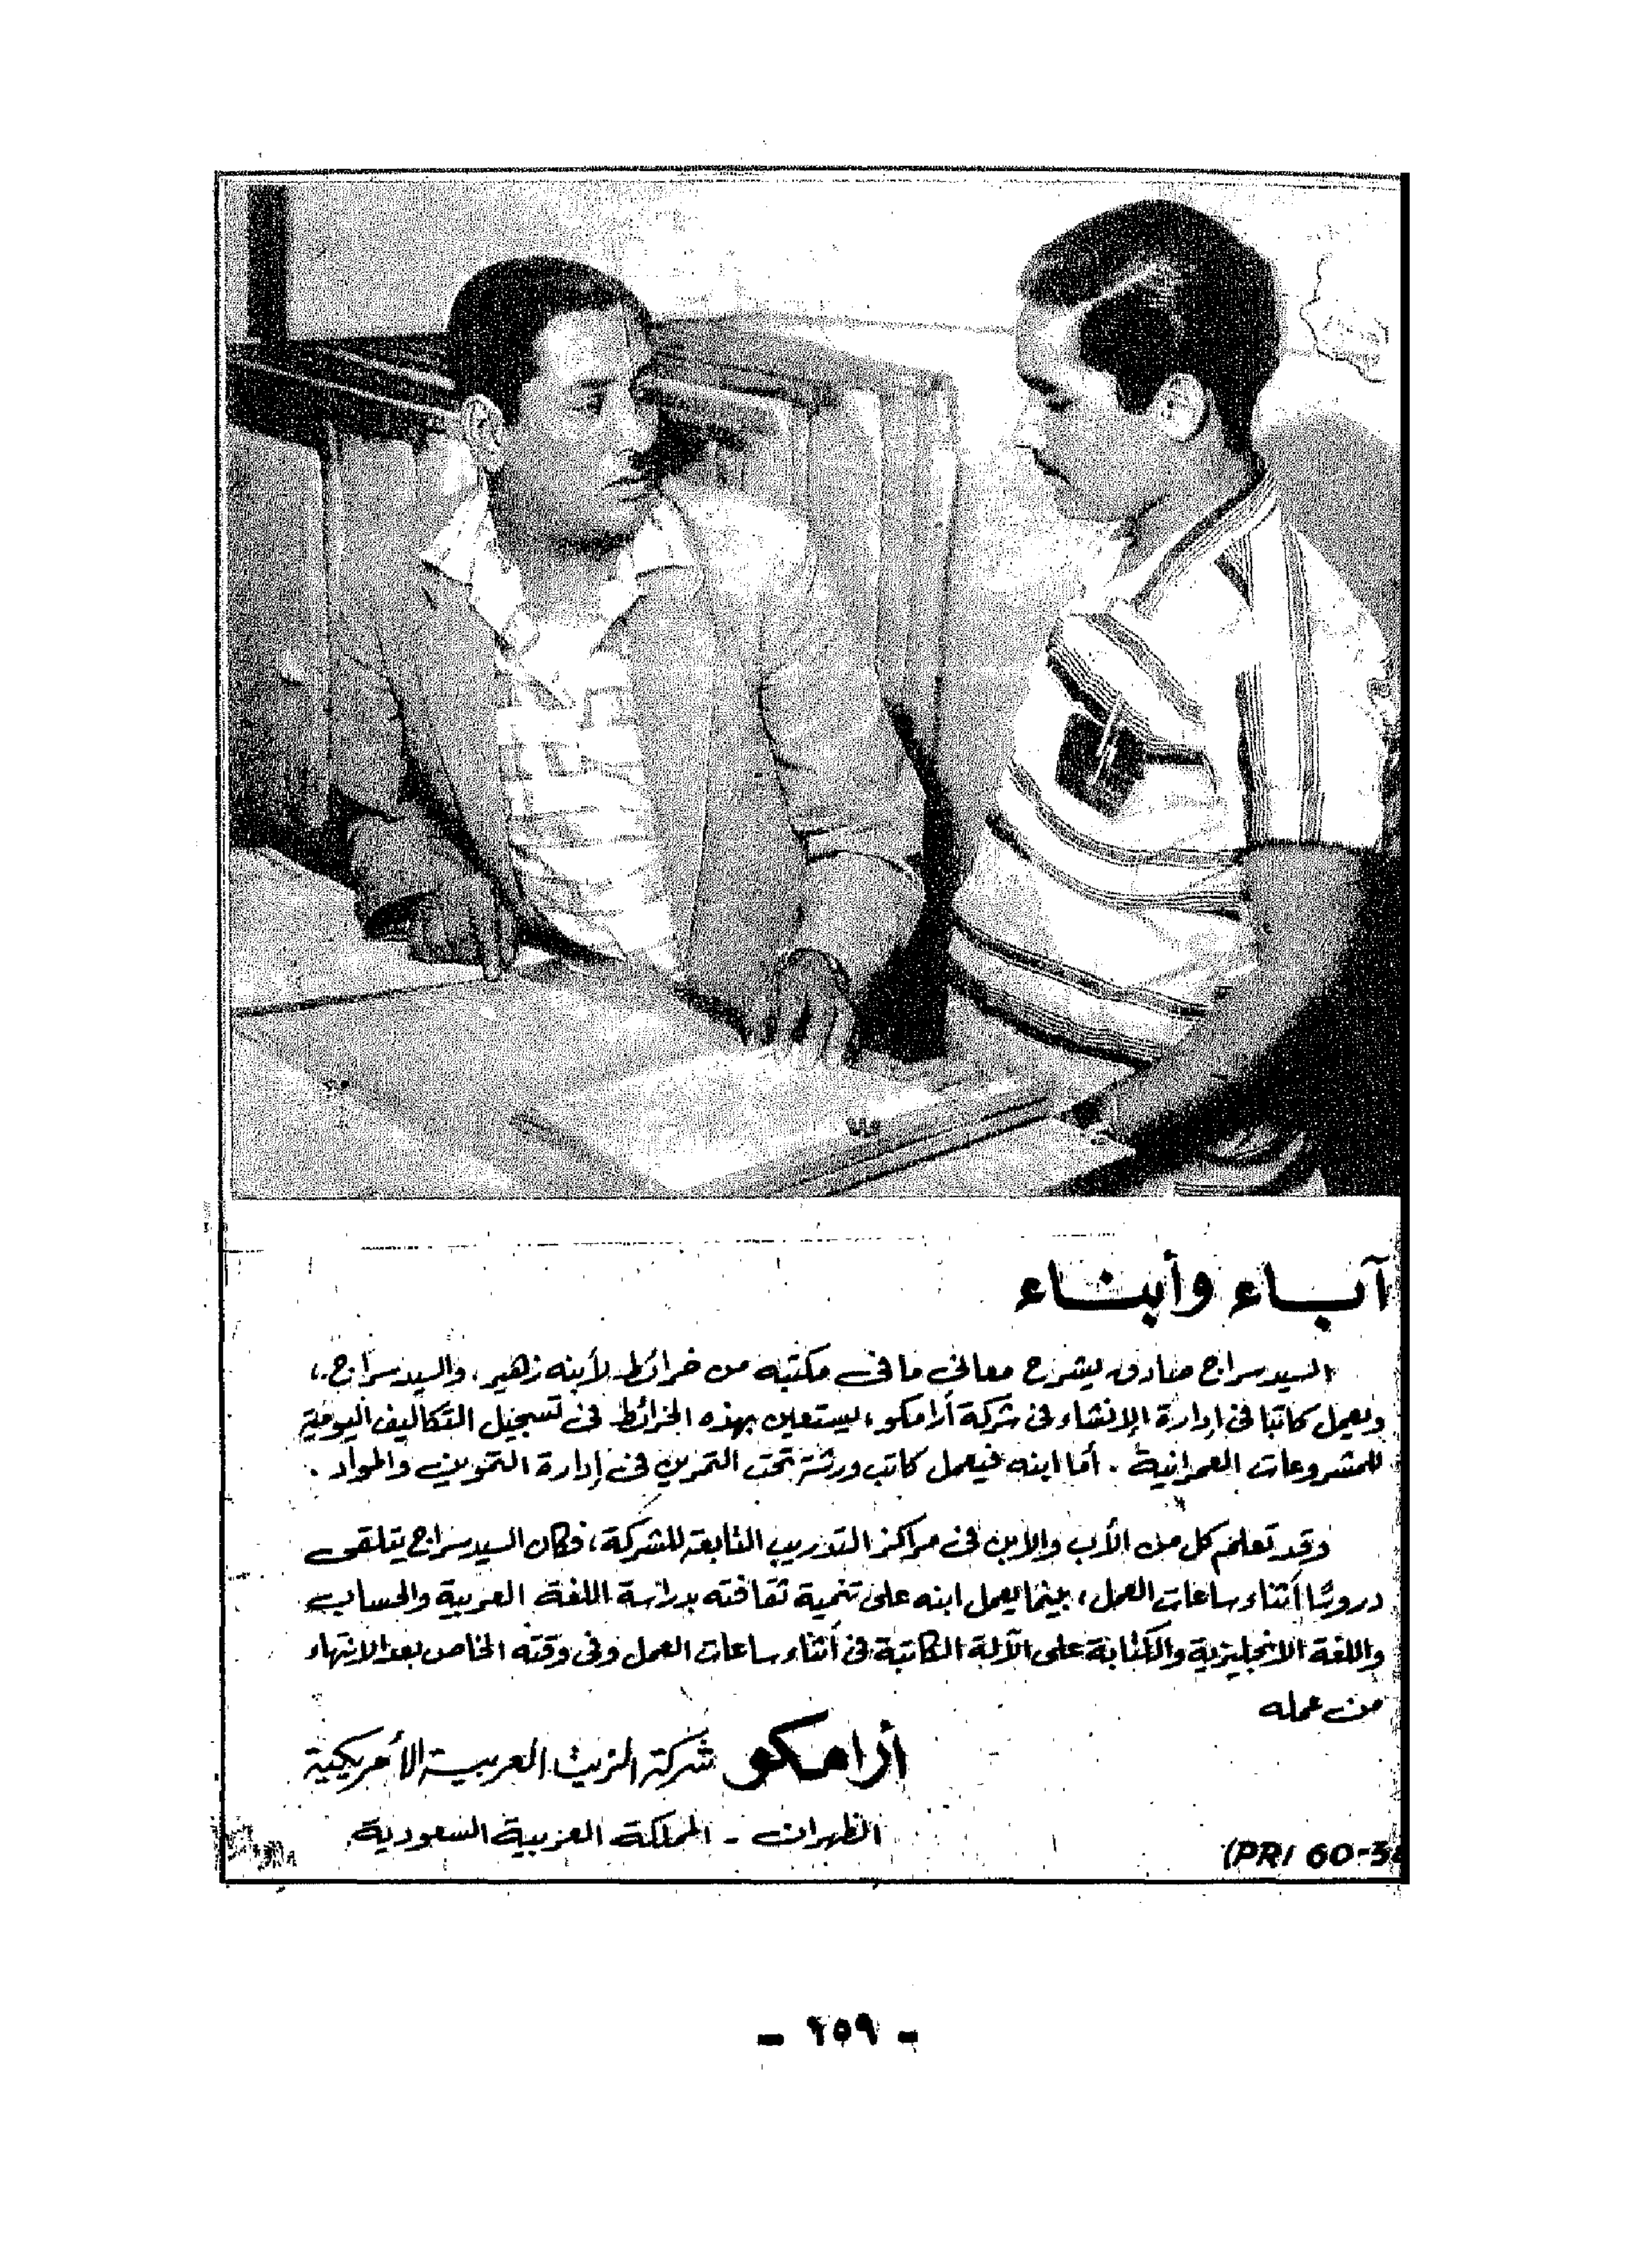 آباء وأبناء
السيد سراج صادق يشرح معاني ما في مكتبه من خرائط لأبنه زهير، والسيد سراج،
ويعمل كاتبا في إدارة الإنشاء في شركة أرامكو، يستعين بهذه الخرائط في تسجيل التكاليف اليومية
للمشروعات العمرانية . أما ابنه فيعمل كاتب ورشة تحت التمرين في إدارة التموين والمواد .
وقد تعلم كل من الأب والابن في مراكز التدريب التابعة للشركة، فكان السيد سراج يتلقى
دروسًا أثناء ساعات العمل، بينما يعمل ابنه على تنمية ثقافته بدراسة اللغة العربية والحساب
واللغة الانجليزية والكتابة على الآلة الكاتبة في أثناء ساعات العمل وفي وقته الخاص بعد الانتهاء
من عمله
أرامكو شركة الزيت العربية الأمريكية
الظهران - المملكة العربية السعودية
(PRI 60-3
- ٢٥٩ -